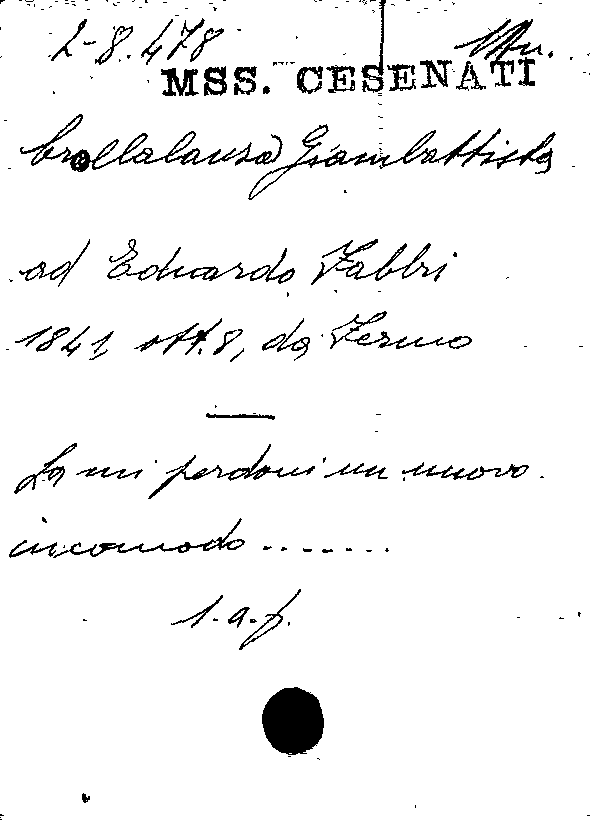 2-8.478
MSS. CESENATI
Crollalanza Giambattista
ad Eduardo Fabbri
1841, ott. 8, da Fermo
La mi perdoni un nuovo
incomodo........
l.a.f.